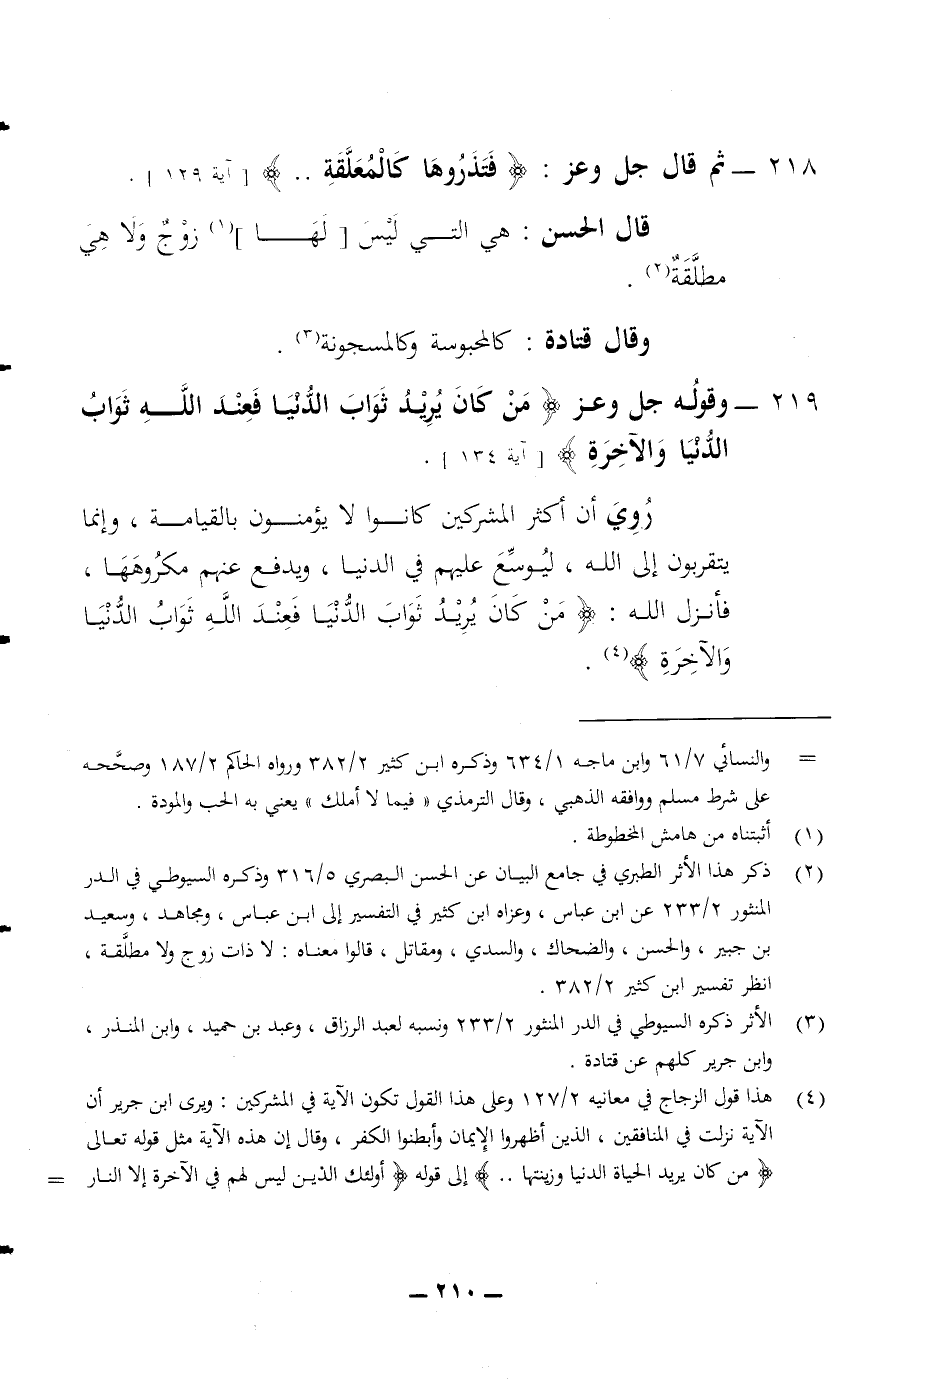 ٢١٨ ــ ثم قال جل وعز : ﴿ فَتَذَرُوهَا كَالْمُعَلَّقَةِ .. ﴾ [ آية ١٢٩ ] .
قال الحسن : هي التـــي لَيْسَ [ لَهَــــا ](١) زوْجٌ وَلَا هِيَ
مطلَّقَةٌ(٢) .
وقال قتادة : كالمحبوسة وكالمسجونة(٣) .
٢١٩ ــ وقولُـه جل وعـز ﴿ مَنْ كَانَ يُرِيْـدُ ثَوَابَ الدُّنْيَـا فَعِنْـدَ اللَّـــهِ ثَوَابُ
الدُّنْيَا وَالآخِرَةِ ﴾ [ آية ١٣٤ ] .
رُوِيَ أن أكثر المشركين كانــوا لا يؤمنــون بالقيامــة ، وإنما
يتقربون إلى الله ، ليُوسِّعَ عليهم في الدنيـا ، ويدفـع عنهـم مكرُوهَهَـا ،
فأنـزل اللـه : ﴿ مَنْ كَانَ يُرِيْـدُ ثَوَابَ الدُّنْيَـا فَعِنْـدَ اللَّهِ ثَوَابُ الدُّنْيَـا
وَالآخِرَةِ ﴾(٤) .
= والنسائي ٦١/٧ وابن ماجـه ٦٣٤/١ وذكـره ابـن كثير ٣٨٢/٢ ورواه الحاكم ١٨٧/٢ وصحَّحـه
على شرط مسلم ووافقه الذهبي ، وقال الترمذي « فيما لا أملك » يعني به الحب والمودة .
(١) أثبتناه من هامش المخطوطة .
(٢) ذكر هذا الأثر الطبري في جامع البيان عن الحسن البـصري ٣١٦/٥ وذكـره السيوطـي في الـدر
المنثور ٢٣٣/٢ عن ابن عباس ، وعزاه ابن كثير في التفسير إلى ابـن عبـاس ، ومجاهـد ، وسعيـد
بن جبير ، والحسن ، والضحاك ، والسدي ، ومقاتل ، قالوا معنـاه : لا ذات زوج ولا مطلَّقـة ،
انظر تفسير ابن كثير ٣٨٢/٢ .
(٣) الأثر ذكره السيوطي في الدر المنثور ٢٣٣/٢ ونسبه لعبد الرزاق ، وعبد بن حميد ، وابن المنـذر ،
وابن جرير كلهم عن قتادة .
(٤) هذا قول الزجاج في معانيه ١٢٧/٢ وعلى هذا القول تكون الآية في المشركين : ويرى ابن جرير أن
الآية نزلت في المنافقين ، الذين أظهروا الإيمان وأبطنوا الكفر ، وقال إن هذه الآية مثل قوله تعـالى
﴿ من كان يريد الحياة الدنيا وزينتها .. ﴾ إلى قوله ﴿ أولئك الذيـن ليس لهم في الآخرة إلا النـار =
ــ ٢١٠ ــ